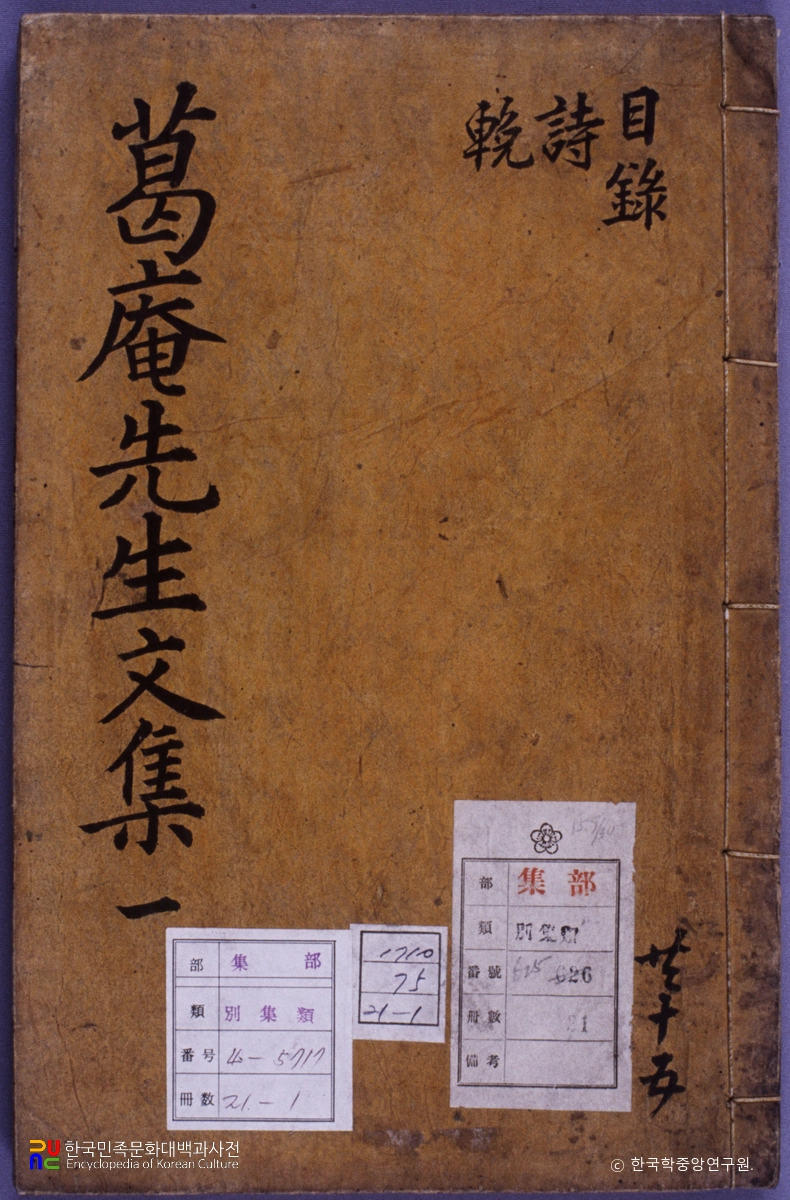 目錄
詩
輓
葛庵先生文集 一
共十五
部 集部
類 別集類
番號 626
冊數 21
備考
1710
75
21-1
部 集部
類 別集類
番号 5717
冊数 21-1
한국민족문화대백과사전
Encyclopedia of Korean Culture
ⓒ 한국학중앙연구원